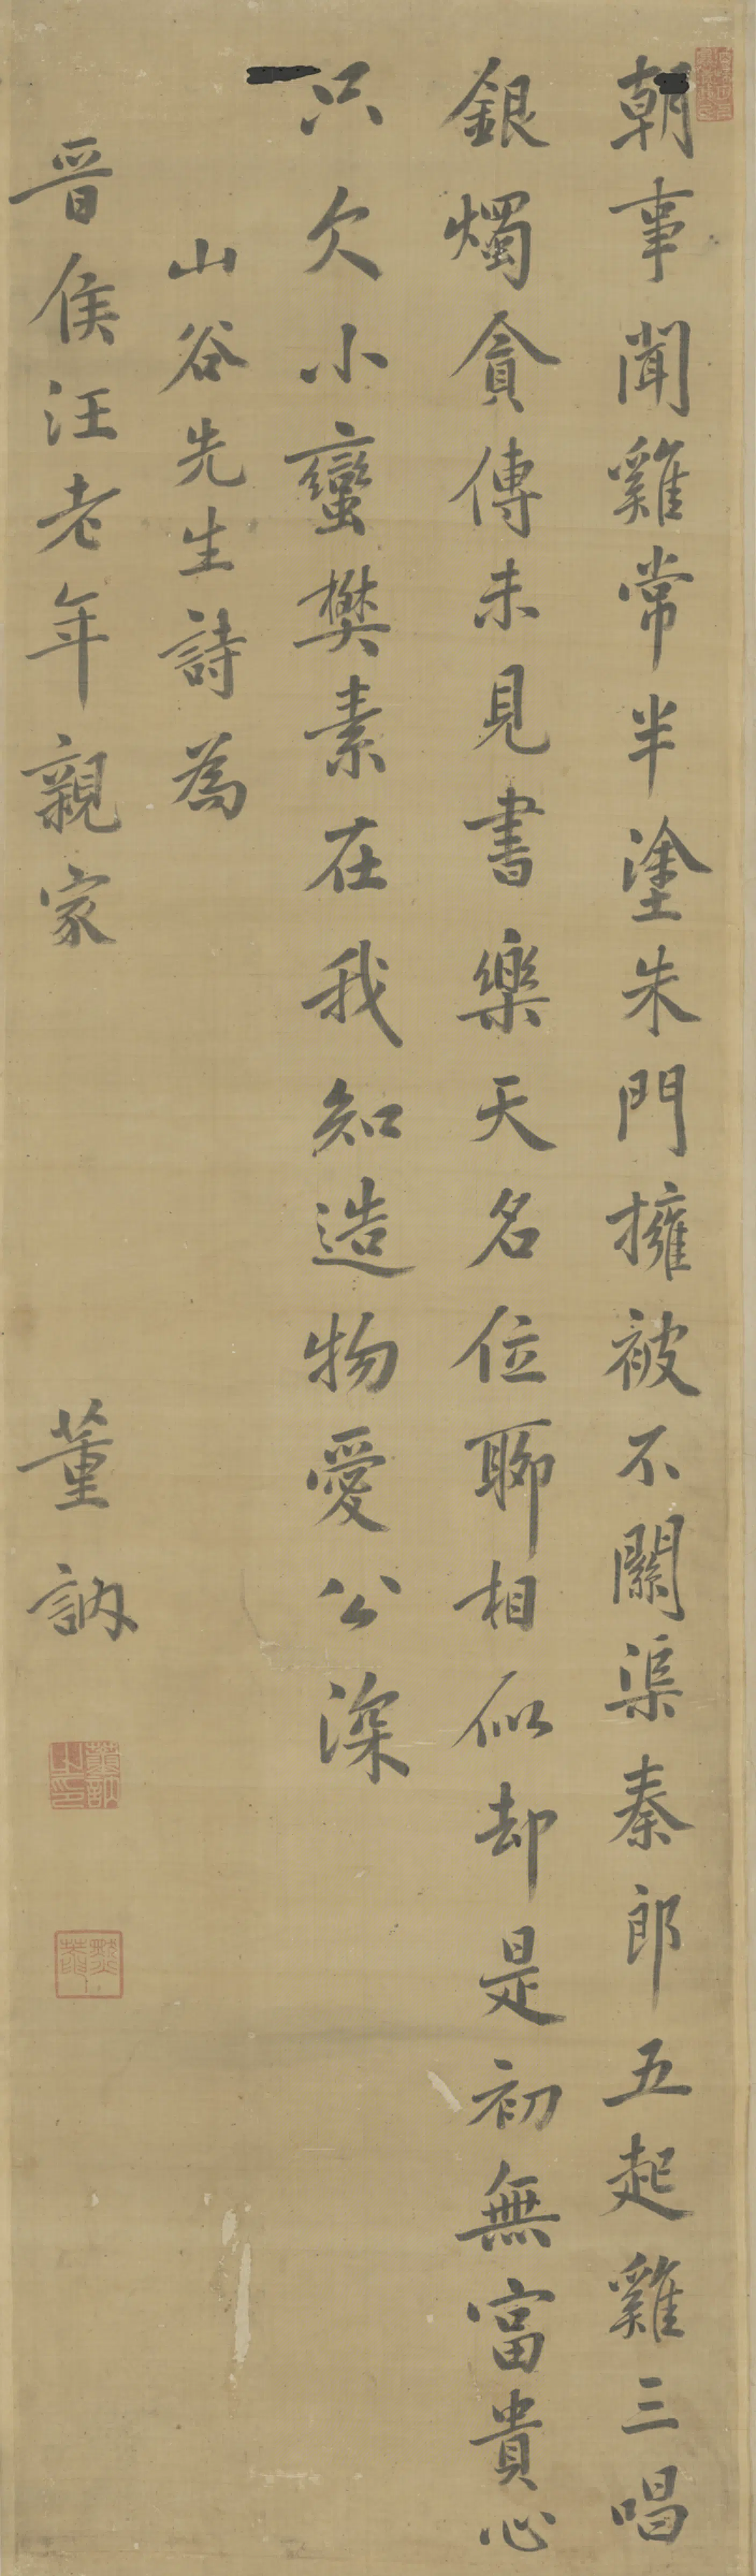 朝事聞雞常半塗朱門擁被不關渠秦郎五起雞三唱
銀燭貪傳未見書樂天名位聊相似却是初無富貴心
只欠小蠻樊素在我知造物愛公深
山谷先生詩為
晉侯汪老年親家
董訥
董訥之印